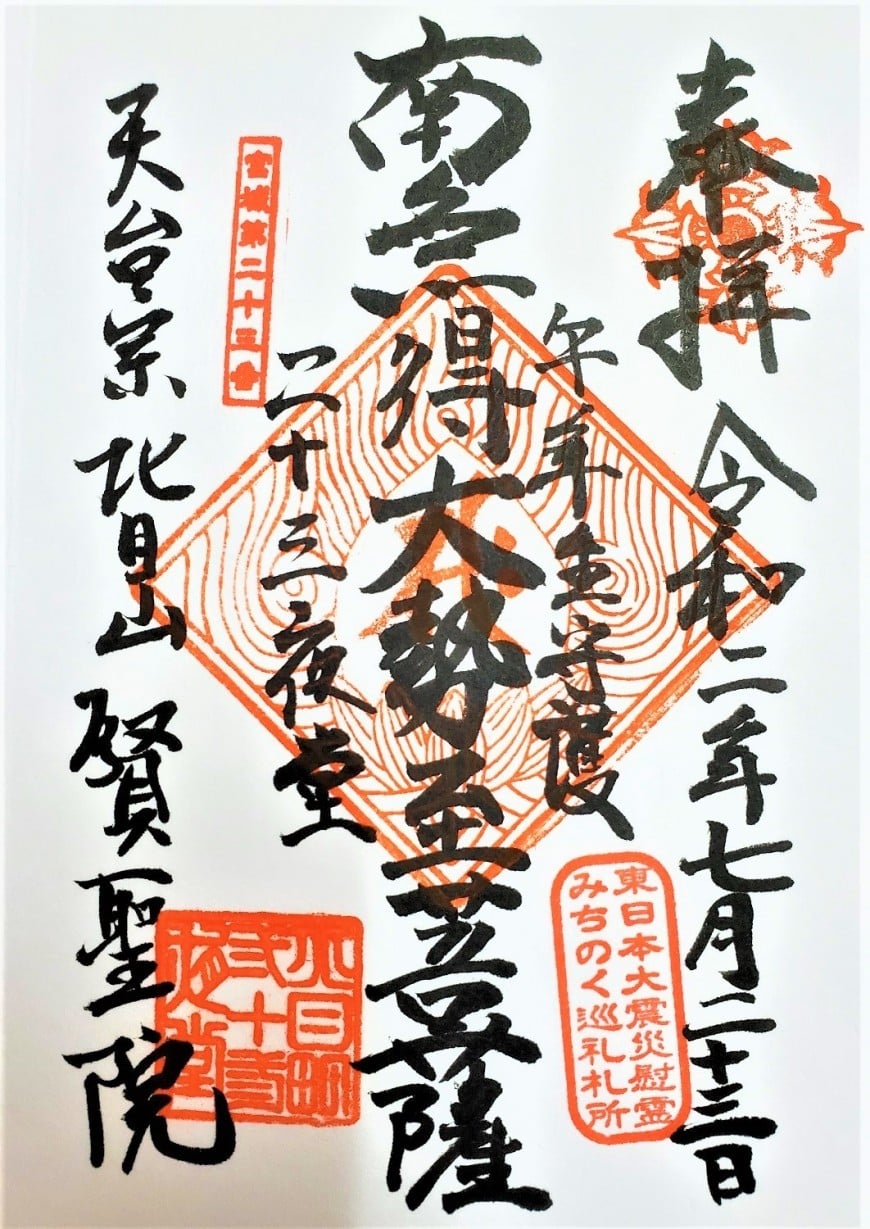 奉拝 令和二年七月二十三日
東日本大震災慰霊
みちのく巡礼札所
午年生守護
南無得大勢至菩薩
二十三夜堂
宮城第二十三番
天台宗
山 賢聖院
北目町
夜堂